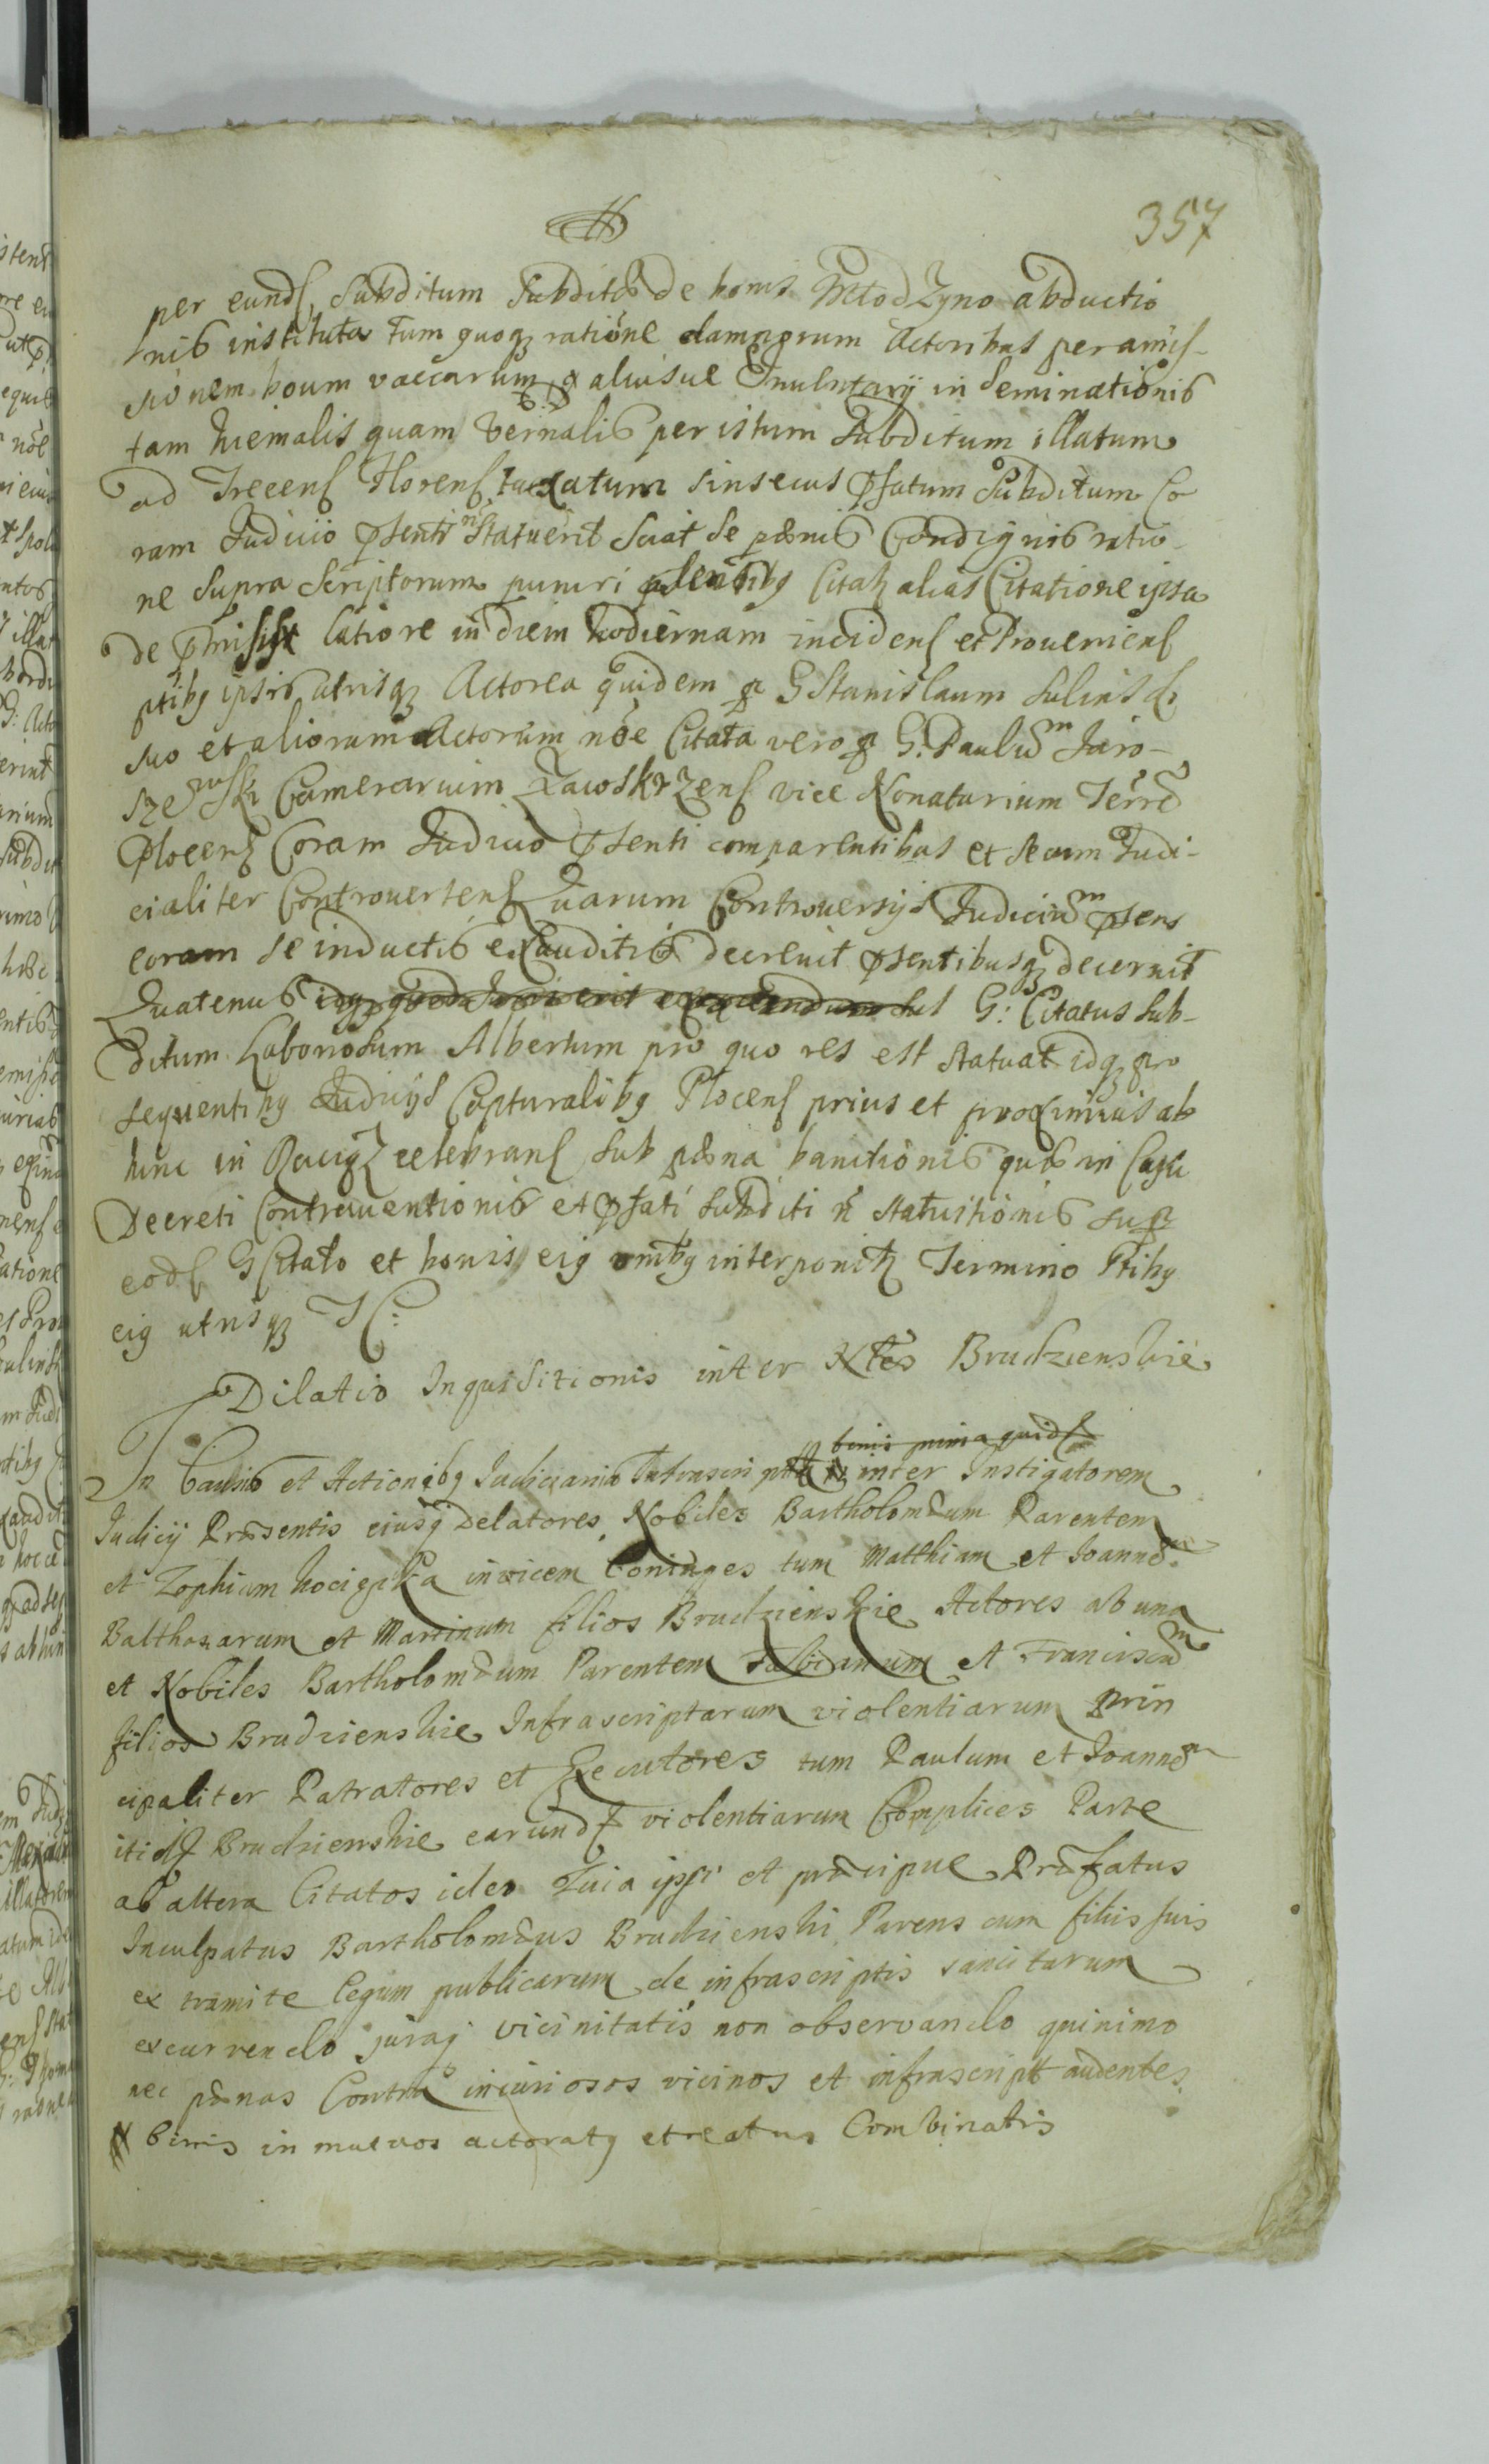 357
per eund subditum subditi de bonis Młodzyno abductio
nis instituta tum quoq ratione damnorum Actoribus per amis-
sionem boum vaccarum aliusue in Seminationis
tam hiemalis quam vernalis per istum Subditum illatum
ad Trecens florens taxatum sinsecus pfatum Subditum Co
ram Judicio psenti n Statuerit Sciat se pænis Condignis ratio-
ne supra Scriptorum puniri Citah alias Citatione ipsa
de latiore in diem hodiernam incidens et Proueniens
ptibq ipsis utrisq Actorea quidem p G Stanislaum Sulinski
suo et aliorum Actorum nõe Citata vero p G. Paulum Jaro-
szewski Camerarium Zawskrzens vice Nonatarium Terræ
Plocens Coram Judicio psenti comparentibus et secum Judi-
cialiter Controuertens Quarum Controuersys Judicium psens
coram se inductis exauditis decreuit psentibusq decernit
Quatenus G: Citatus Sub-
ditum Laboriosum Albertum pro quo res est statuat idq pro
sequentibq Judicijs Capturalibq Plocens prius et proximius ab
hinc in Raciąz celebrans sub pæna banitionis quæ in Casu
Decreti Contrauentionis et pfati subditi n statuitionis sup
eods G Citato et bonis eiq omibq interponit Termino Ptibq
eiq utrisq
Dilatio Inquisitionis inter Nbles Brudzienskie
binis nimia quids
In Causis et Actionibq Judiciarijs Infrascriptis inter Instigatorem
Judicij Præsentis eiusq Delatores Nobiles Bartholomæum Parentem
et Zophiam invicem Coniuges tum Matthiam et Joannem
Balthazarum et Martinum filios Brudzienskie Actores ab una
et Nobiles Bartholomæum Parentem Fabianum et Franciscum
filios Brudzienskie Infrascriptarum violentiarum Prin
cipaliter Patratores et Executores tum Paulum et Joannem
itid Brudzienskie earund violentiarum Complices Parte
ab altera Citatos ideo Quia ipsi et præcipue Præfatus
Inculpatus Bartholomæus Brudzienski Parens cum filiis suis
ex tramite legum publicarum de infrascriptis sancitarum
excurrendo juraq vicinitatis non observando quinimo
nec pænas Contra iniuriosos vicinos et infrascript audentes
binis in mutuos actoratq et reatus Combinatis